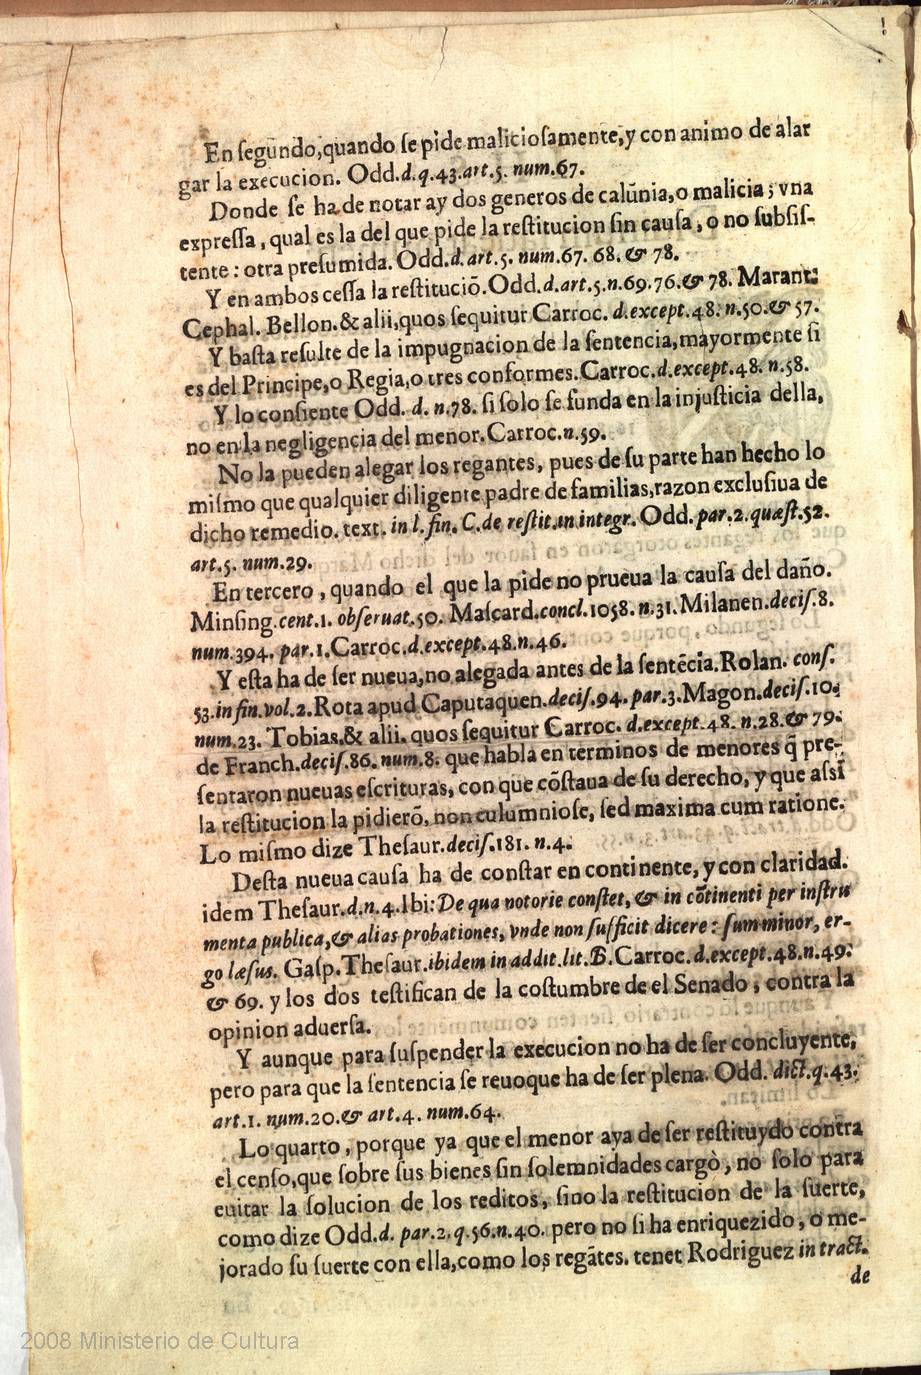 En ſegundo,quando ſe pide malicioſamente,y con animo de alar
gar la execucion. Odd.d.q.43.art.5. num.67.
Donde ſe ha de notar ay dos generos de calũnia,o malicia; vna
expreſſa, qual es la del que pide la reſtitucion ſin cauſa, o no ſubſiſ-
tente: otra preſumida. Odd.d.art.5. num.67. 68. & 78.
Y en ambos ceſſa la reſtituciõ.Odd.d.art.5.n.69.76.& 78. Marant:
Cephal. Bellon.& alii,quos ſequitur Carroc. d.except.48. n.50.& 57.
Y baſta reſulte de la impugnacion de la ſentencia,mayormente ſi
es del Principe,o Regia,o tres conformes.Carroc.d.except.48. n.58.
Y lo conſiente Odd. d. n.78. ſi ſolo ſe funda en la injuſticia della,
no en la negligencia del menor.Carroc.n.59.
No la pueden alegar los regantes, pues de ſu parte han hecho lo
miſmo que qualquier diligente padre de familias,razon excluſiua de
dicho remedio. text. in l.fin. C.de reſtit.in integr. Odd. par.2.quæſt.52.
art.5. num.29.
En tercero, quando el que la pide no prueua la cauſa del daño.
Minſing.cent.1. obſeruat.50. Maſcard.concl.1058. n.31.Milanen.deciſ.8.
num.394. par.1.Carroc.d.except.48.n.46.
Y eſta ha de ſer nueua,no alegada antes de la ſentẽcia.Rolan. conſ.
53.in fin.vol.2.Rota apud Caputaquen.deciſ.94. par.3.Magon.deciſ.10.
num.23. Tobias.& alii. quos ſequitur Carroc. d.except.48. n.28.& 79.
de Franch.deciſ.86. num.8. que habla en terminos de menores q̃ pre-
ſentaron nueuas eſcrituras, con que cõſtaua de ſu derecho, y que aſſi
la reſtitucion la pidierõ, non culumnioſe, ſed maxima cum ratione.
Lo miſmo dize Theſaur.deciſ.181. n.4.
Deſta nueua cauſa ha de conſtar en continente, y con claridad.
idem Theſaur.d.n.4.Ibi:De qua notorie conſtet, & in cõtinenti per inſtru
menta publica,& alias probationes, vnde non ſufficit dicere: ſum minor, er-
go læſus. Gaſp.Theſaur.ibidem in addit.lit.B.Carroc.d.except.48.n.49.
& 69. y los dos teſtifican de la coſtumbre de el Senado, contra la
opinion aduerſa.
Y aunque para ſuſpender la execucion no ha de ſer concluyente,
pero para que la ſentencia ſe reuoque ha de ſer plena. Odd. dict.q.43.
art.1. num.20.& art.4. num.64.
Lo quarto, porque ya que el menor aya de ſer reſtituydo contra
el cenſo,que ſobre ſus bienes ſin ſolemnidades cargò, no ſolo para
euitar la ſolucion de los reditos, ſino la reſtitucion de la ſuerte,
como dize Odd.d. par.2.q.56.n.40. pero no ſi ha enriquezido, o me-
jorado ſu ſuerte con ella,como los regãtes. tenet Rodriguez in tract.
de
2008 Ministerio de Cultura